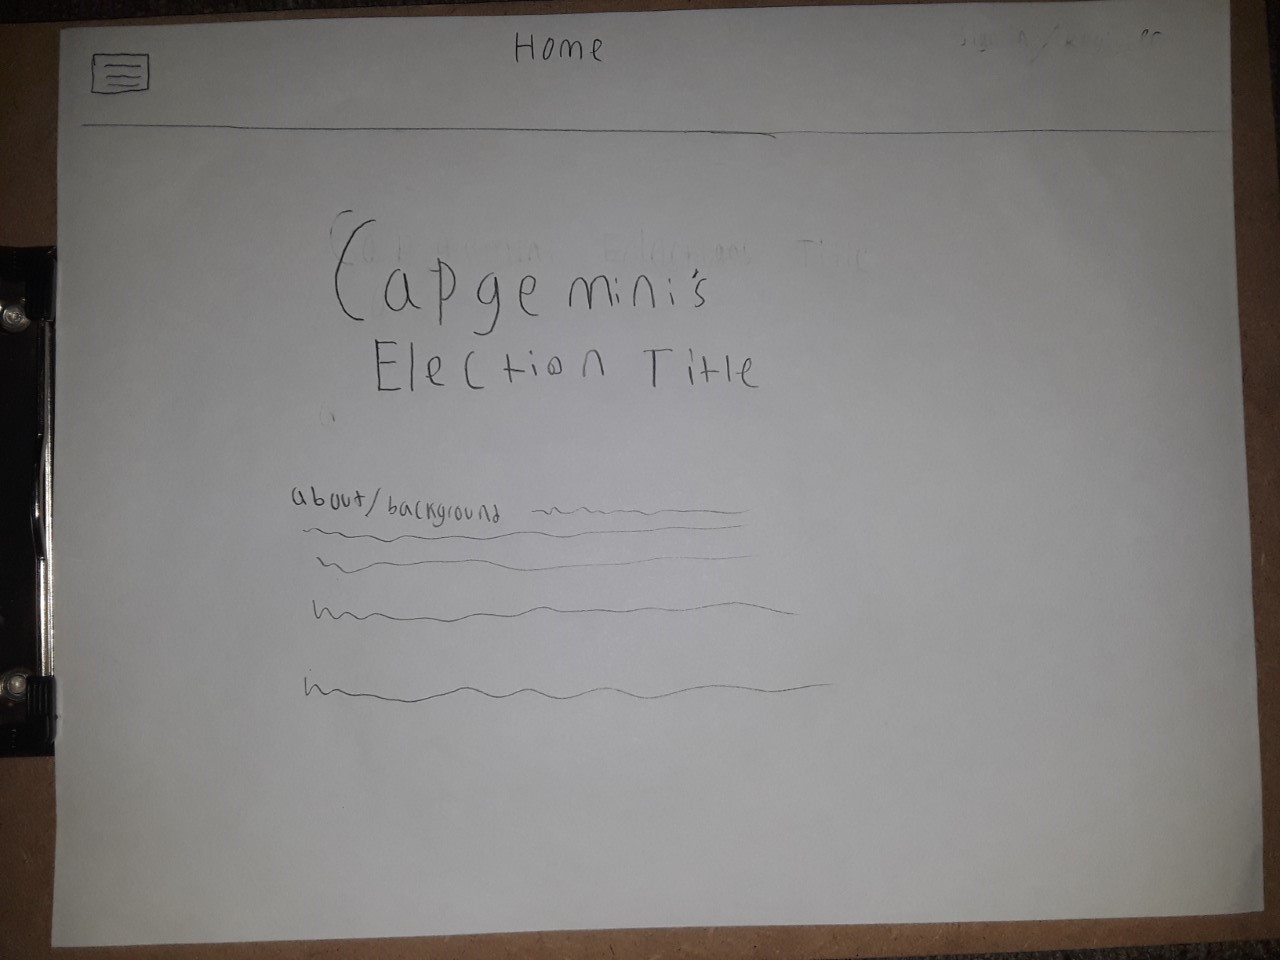 Home
Capgemini's
Election Title
about/background